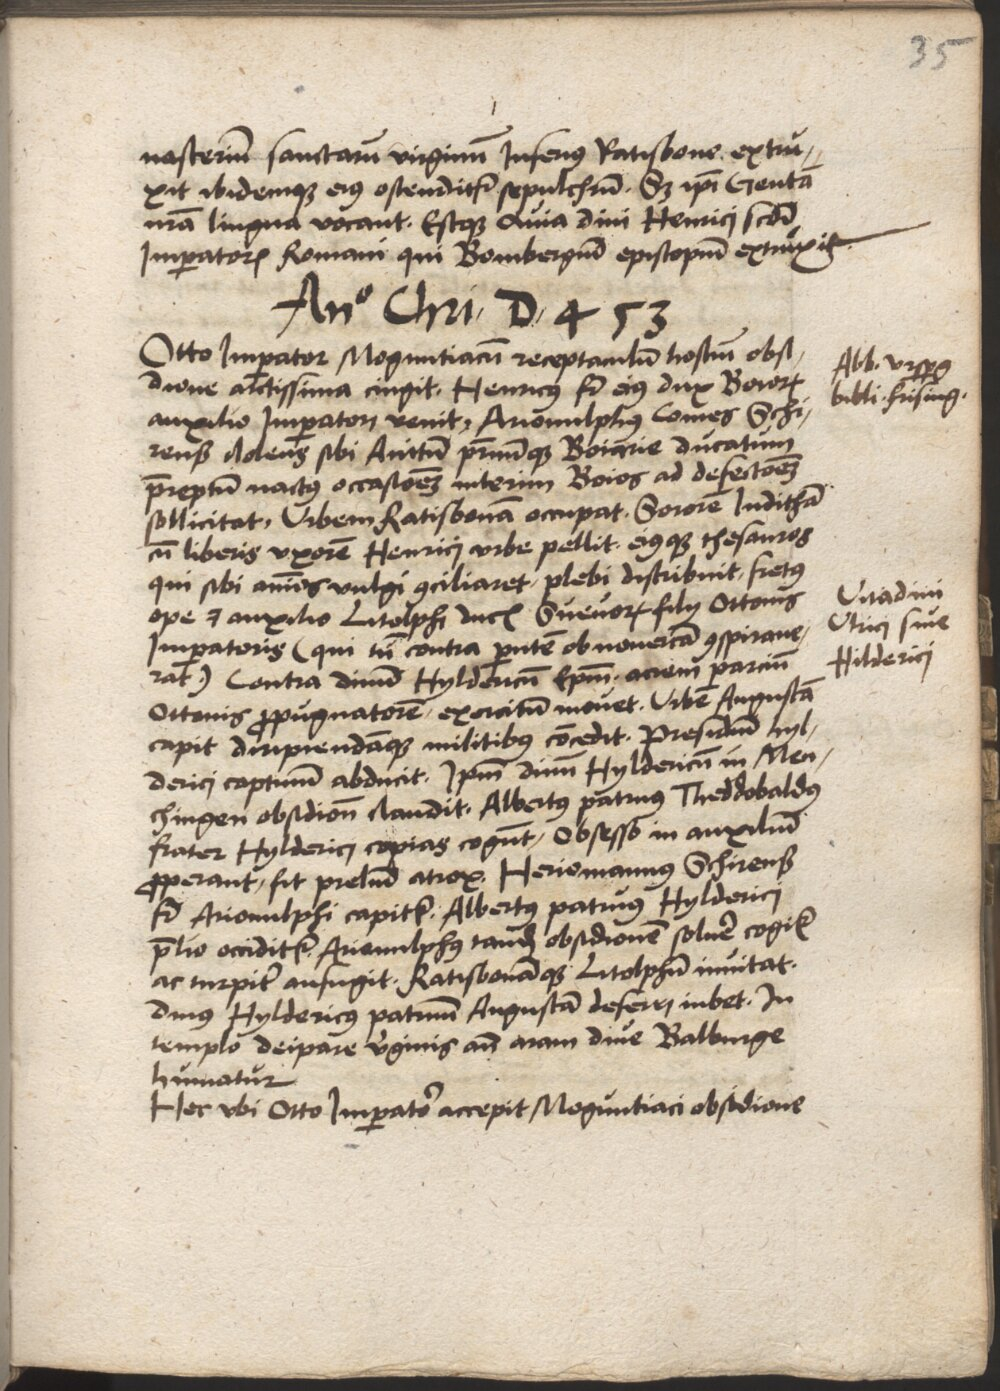 35
nasteriū sanctarū virginū Inferius Ratisbone extru-
xit ibidemqȝ eius ostenditr̄ sepulchrū. Sȝ ipi Gentā
nr̄a lingua vocant. Estqȝ Auia diui Henrici scdī
Imperatorꝝ Romani qui Bombergūm epistopiū extruxit.
Anº Chri. D. 4 53
Otto Imperator Moguntiacū receptaculū hostiū obsi-
dione artissima cingit. Henricus fr̄ eius dux Boiorꝝ
auxilio Imperatori venit, Arionulphus Comes Schi-
rens dolens sibi Auitū pr̄imūqȝ Boiarie ducatum
p̄reptū nactus occasioēȝ interim Boios ad defectoēȝ
sollicitat, Urbem Ratisbonā occupat. Sororē Juditħā
cū liberis vxorē Henrici vrbe pellit. eiusqȝ thesauros
qui sibi aīos vulgi ꝯciliaret, plebi distribuit, fretus
ope ⁊ auxilio Litolphi ducꝭ Sueuorꝝ filij Ottonis
Imperatoris (qui tū contra parentē ob nouercā ꝯspiraue-
rat) Contra diuū Hyldericū Epm̄. aciem parciū
Ottonis ꝓpugnatorē, exercitū mouet. Urbē Augustā
capit diripiendāqȝ militibus cōcedit. Presidiū hyl-
derici captiuū abducit. Ipm̄ diuū Hyldericū in Men-
chingen obsidion̄ claudit. Albertus patruus Theddobaldus
frater Hylderici copias cogūt, Obsesso in auxiliū
ꝓperant, fit preliū atrox. Heriomannus Schirens
fr̄ Arionulphi capitr̄. Albertus patruus Hylderici
p̄lio occiditr̄. Arionulphus tandē obsidionē soluer̄ cogitr̄
ac turpiter̄ aufugit. Ratisbonāqȝ Litolphū inuitat.
Diuus Hyldericus patruū Augustā deferri iubet. In
templo deipare v̄ginis an̄ aram diue Balburge
humatur
Hec vbi Otto Imperator̄ accepit Moguntiaci obsidione
Abb. vrsperg
bibli. frising.
Vita diui
Vlrici siue
Hilderici